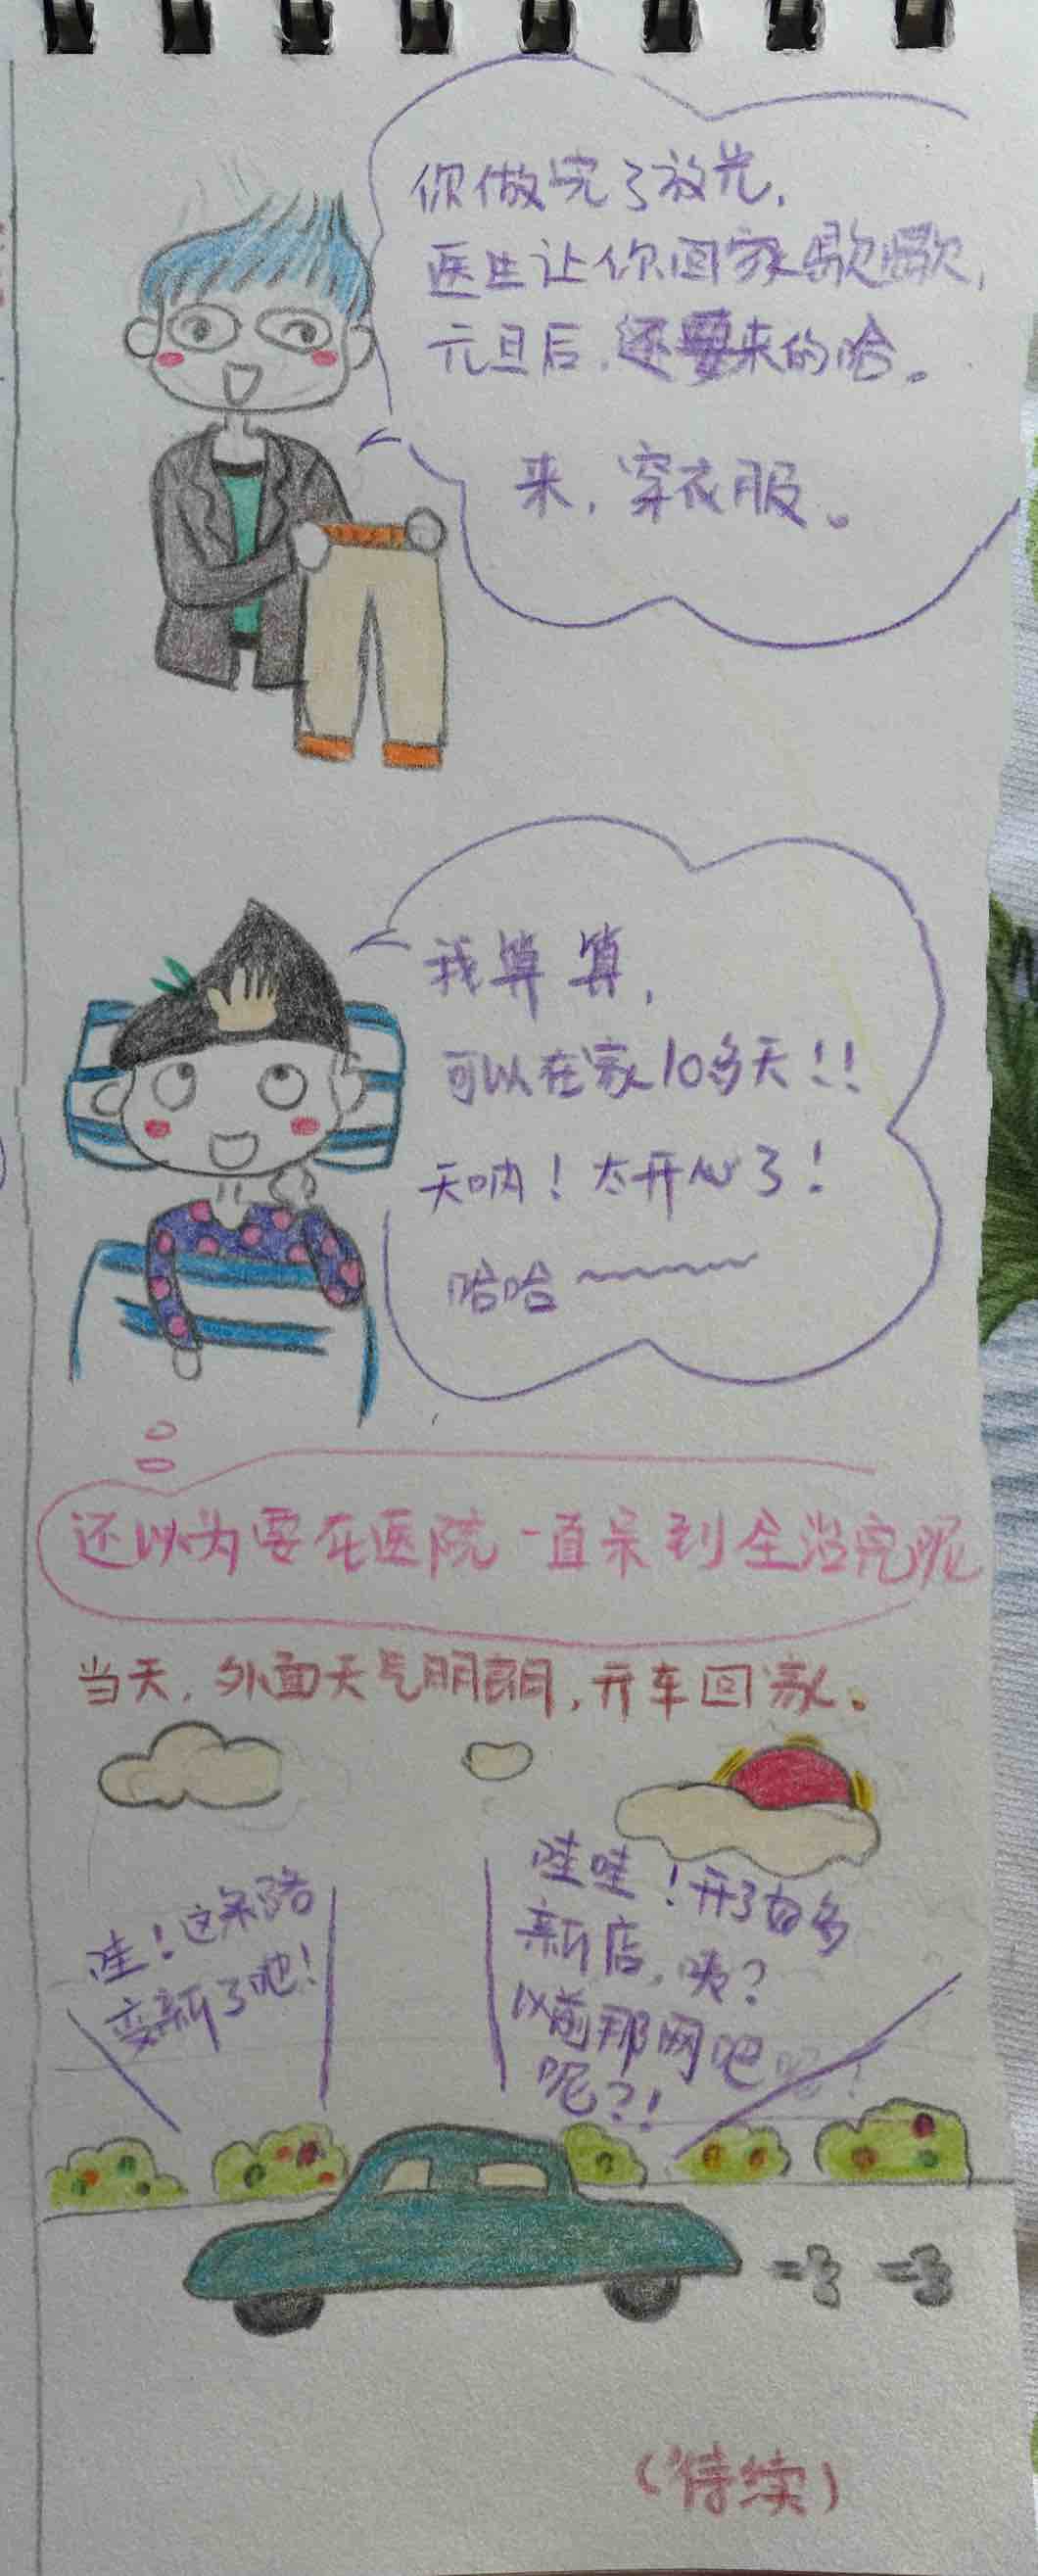 你做完了放光,
医生让你回家歇歇,
元旦后,还要来的哈。
来,穿衣服。
我算算,
可以在家10多天!!
天呐!太开心了!
哈哈~~~~~~
还以为要在医院一直呆到全治完呢
当天,外面天气明朗,开车回家。
哇!这条路
变新了吔!
哇哇!开了好多
新店,咦?
以前那网吧
呢?!
(待续)